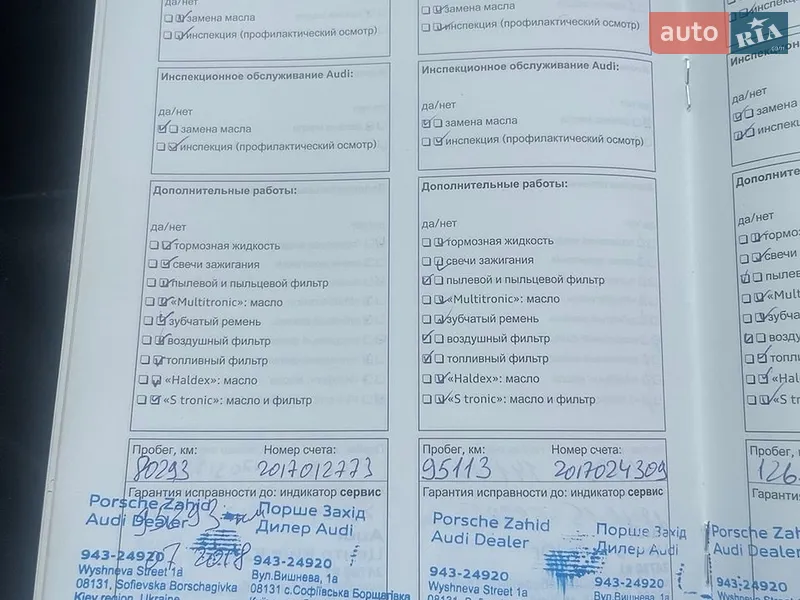 да/нет
замена масла
инспекция (профилактический осмотр)
Инспекционное обслуживание Audi:
да/нет
замена масла
инспекция (профилактический осмотр)
Дополнительные работы:
да/нет
тормозная жидкость
свечи зажигания
пылевой и пыльцевой фильтр
«Multitronic»: масло
зубчатый ремень
воздушный фильтр
топливный фильтр
«Haldex»: масло
«S tronic»: масло и фильтр
Пробег, км: Номер счета:
80293 2017012773
Гарантия исправности до: индикатор сервис
Porsche Zahid
Audi Dealer
Порше Захід
Дилер Audi
943-24920
Wyshneva Street 1a
08131, Sofievska Borschagivka
Kiev region, Ukraine
943-24920
Вул.Вишнева, 1а
08131 с.Софіївська Борщагівка
замена масла
инспекция (профилактический осмотр)
Инспекционное обслуживание Audi:
да/нет
замена масла
инспекция (профилактический осмотр)
Дополнительные работы:
да/нет
тормозная жидкость
свечи зажигания
пылевой и пыльцевой фильтр
«Multitronic»: масло
зубчатый ремень
воздушный фильтр
топливный фильтр
«Haldex»: масло
«S tronic»: масло и фильтр
Пробег, км: Номер счета:
95113 2017024309
Гарантия исправности до: индикатор сервис
Porsche Zahid
Audi Dealer
Порше Захід
Дилер Audi
943-24920
Wyshneva Street 1a
943-24920
Вул.Вишнева, 1а
да/нет
замена
Дополнительн
да/нет
свечи
Пробег, км:
126
Porsche Zahid
Audi Dealer
943-24920
auto RIA .com